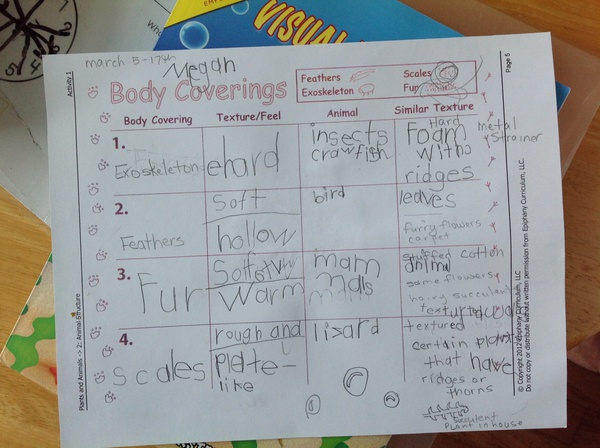 VISUAL
march 5-17th
Megan
Body Coverings
Feathers
Scales
Exoskeleton
Fur
Activity 1
Page 5
Body Covering
Texture/Feel
Animal
Similar Texture
1.
Exoskeleton
hard
insects
crawfish
Hard
Foam
with
ridges
Metal
Strainer
2.
Feathers
Soft
hollow
bird
leaves
furry flowers
carpet
3.
Fur
Soft
Warm
mam
mals
stuffed cotton
animal
some flowers
hairy succulent
textured
4.
Scales
rough and
plate-
like
lizard
textured
certain plants
that have
ridges or
thorns
succulent
Plant in house
Plants and Animals -> 2: Animal Structure
© Copyright 2012 Epiphany Curriculum, LLC
Do not copy or distribute without written permission from Epiphany Curriculum, LLC.